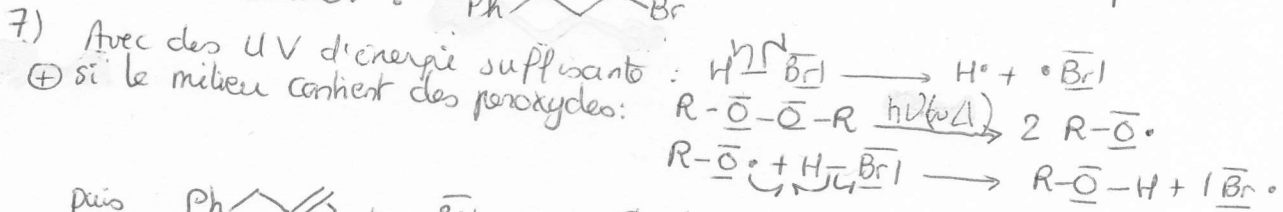 Ph Br
7) Avec des UV d'énergie suffisante : H–Br → H• + •Br
⊕ si le milieu contient des peroxydes: R-O-O-R hν(ou Δ) → 2 R-O•
R-O• + H-Br → R-O-H + Br•
puis Ph